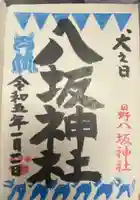 犬之日
日野八坂神社
八坂神社
令和 年 月 日